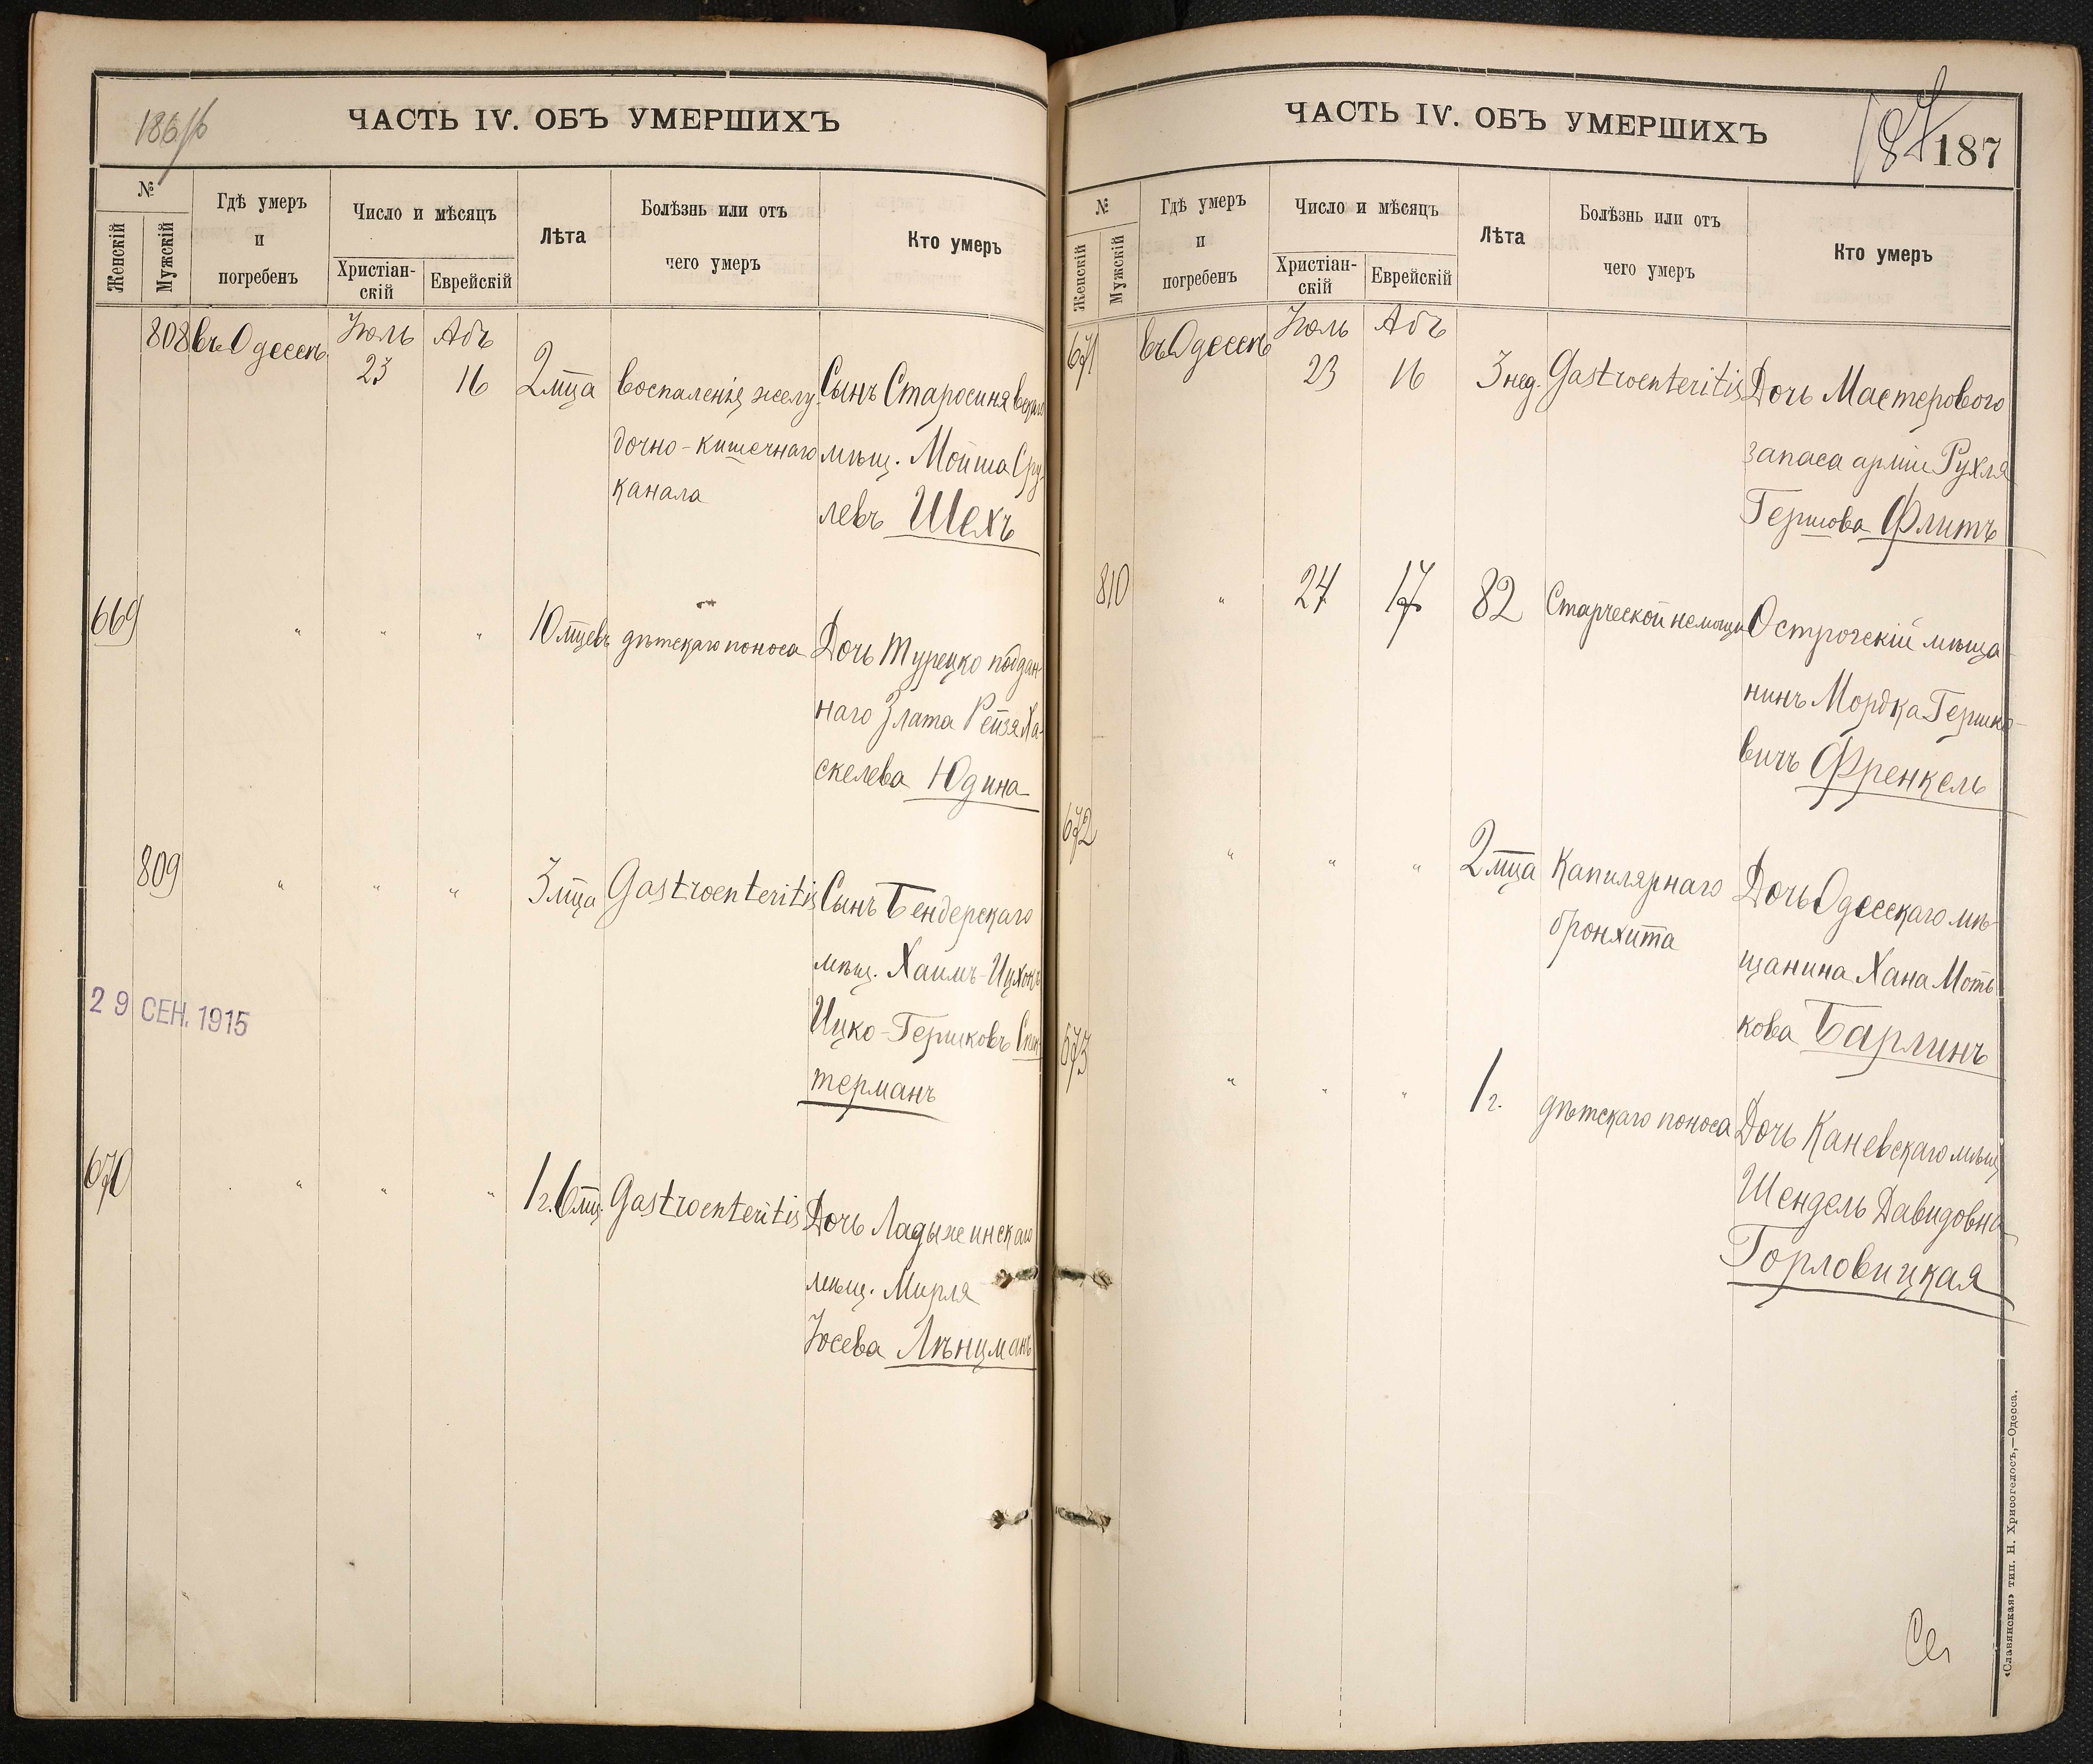 186/б
ЧАСТЬ IV. ОБЪ УМЕРШИХЪ
№
Женскій
Мужскій
Гдѣ умеръ
и
погребенъ
Число и мѣсяцъ
Христіан-
скій
Еврейскій
Лѣта
Болѣзнь или отъ
чего умеръ
Кто умеръ
808 въ Одессѣ Іюль Абъ
23 16 2 мца воспаленія желу- Сынъ Старосинявскаго
дочно-кишечнаго мѣщ. Мойша Сру-
канала левъ Шехъ
669 " " " 10 мцевъ дѣтскаго поноса Дочь Турецко поддан-
наго Злата Рейзя Ха-
скелева Юдина
809 " " " 3 мца Gastroenteritis Сынъ Бендерскаго
мѣщ. Хаимъ-Ицхокъ
Ицко-Гершковъ
терманъ
29 СЕН. 1915
670 " " " 1 г. 6 мц. Gastroenteritis Дочь Ладыжинскаго
мѣщ. Мирля
Іосева Лѣнцманъ
ЧАСТЬ IV. ОБЪ УМЕРШИХЪ
187
187
№
Женскій
Мужскій
Гдѣ умеръ
и
погребенъ
Число и мѣсяцъ
Христіан-
скій
Еврейскій
Лѣта
Болѣзнь или отъ
чего умеръ
Кто умеръ
671 въ Одессѣ Іюль Абъ
23 16 3 нед. Gastroenteritis Дочь Мастерового
запаса арміи Рухля
Гершова Флитъ
810 " 24 17 82 Старческой немощи Острогскій мѣща-
нинъ Мордка Гершко-
вичъ Френкель
672 " " " 2 мца Капилярнаго Дочь Одесскаго мѣ-
бронхита щанина Хана Моть-
кова Барлинъ
673 " " " 1 г. дѣтскаго поноса Дочь Каневскаго мѣщ.
Шендель Давидовна
Горловицкая
«Славянская» тип. Н. Хрисогелосъ,—Одесса.